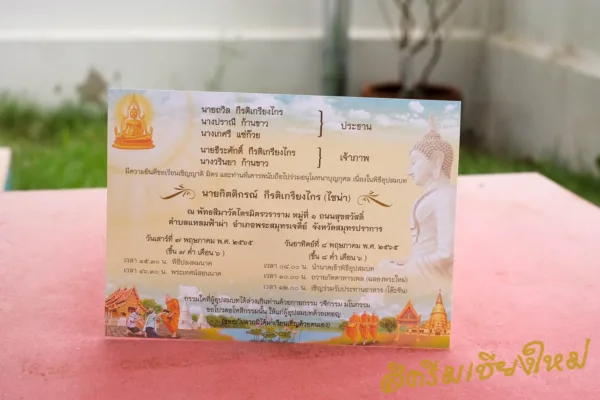 นายถวิล กีรติเกรียงไกร
นางปราณี ก้านขาว
นางเกศรี แซ่ก๊วย
ประธาน
นายธีระศักดิ์ กีรติเกรียงไกร
นางวรินยา ก้านขาว
เจ้าภาพ
มีความยินดีขอเรียนเชิญญาติ มิตร และท่านที่เคารพนับถือไปร่วมอนุโมทนาบุญกุศล เนื่องในพิธีอุปสมบท
นายกิตติกรณ์ กีรติเกรียงไกร (ไชน่า)
ณ พัทธสีมาวัดไตรมิตรวราราม หมู่ที่ ๑ ถนนสุขสวัสดิ์
ตำบลแหลมฟ้าผ่า อำเภอพระสมุทรเจดีย์ จังหวัดสมุทรปราการ
วันเสาร์ที่ ๗ พฤษภาคม พ.ศ. ๒๕๖๕
(ขึ้น ๗ ค่ำ เดือน ๖)
เวลา ๑๕.๓๐ น. พิธีปลงผมนาค
เวลา ๑๖.๓๐ น. พระเทศน์สอนนาค
วันอาทิตย์ที่ ๘ พฤษภาคม พ.ศ. ๒๕๖๕
(ขึ้น ๘ ค่ำ เดือน ๖)
เวลา ๐๘.๐๐ น. นำนาคเข้าพิธีอุปสมบท
เวลา ๑๐.๐๐ น. ถวายภัตตาหารเพล (ฉลองพระใหม่)
เวลา ๑๒.๐๐ น. เชิญร่วมรับประทานอาหาร (โต๊ะจีน)
กรรมใดที่ผู้อุปสมบทได้ล่วงเกินท่านด้วยกายกรรม วจีกรรม มโนกรรม
ขอโปรดอโหสิกรรมนั้น ให้แก่ผู้อุปสมบทด้วยเทอญ
(ขออภัยหากมิได้มาเรียนเชิญด้วยตนเอง)